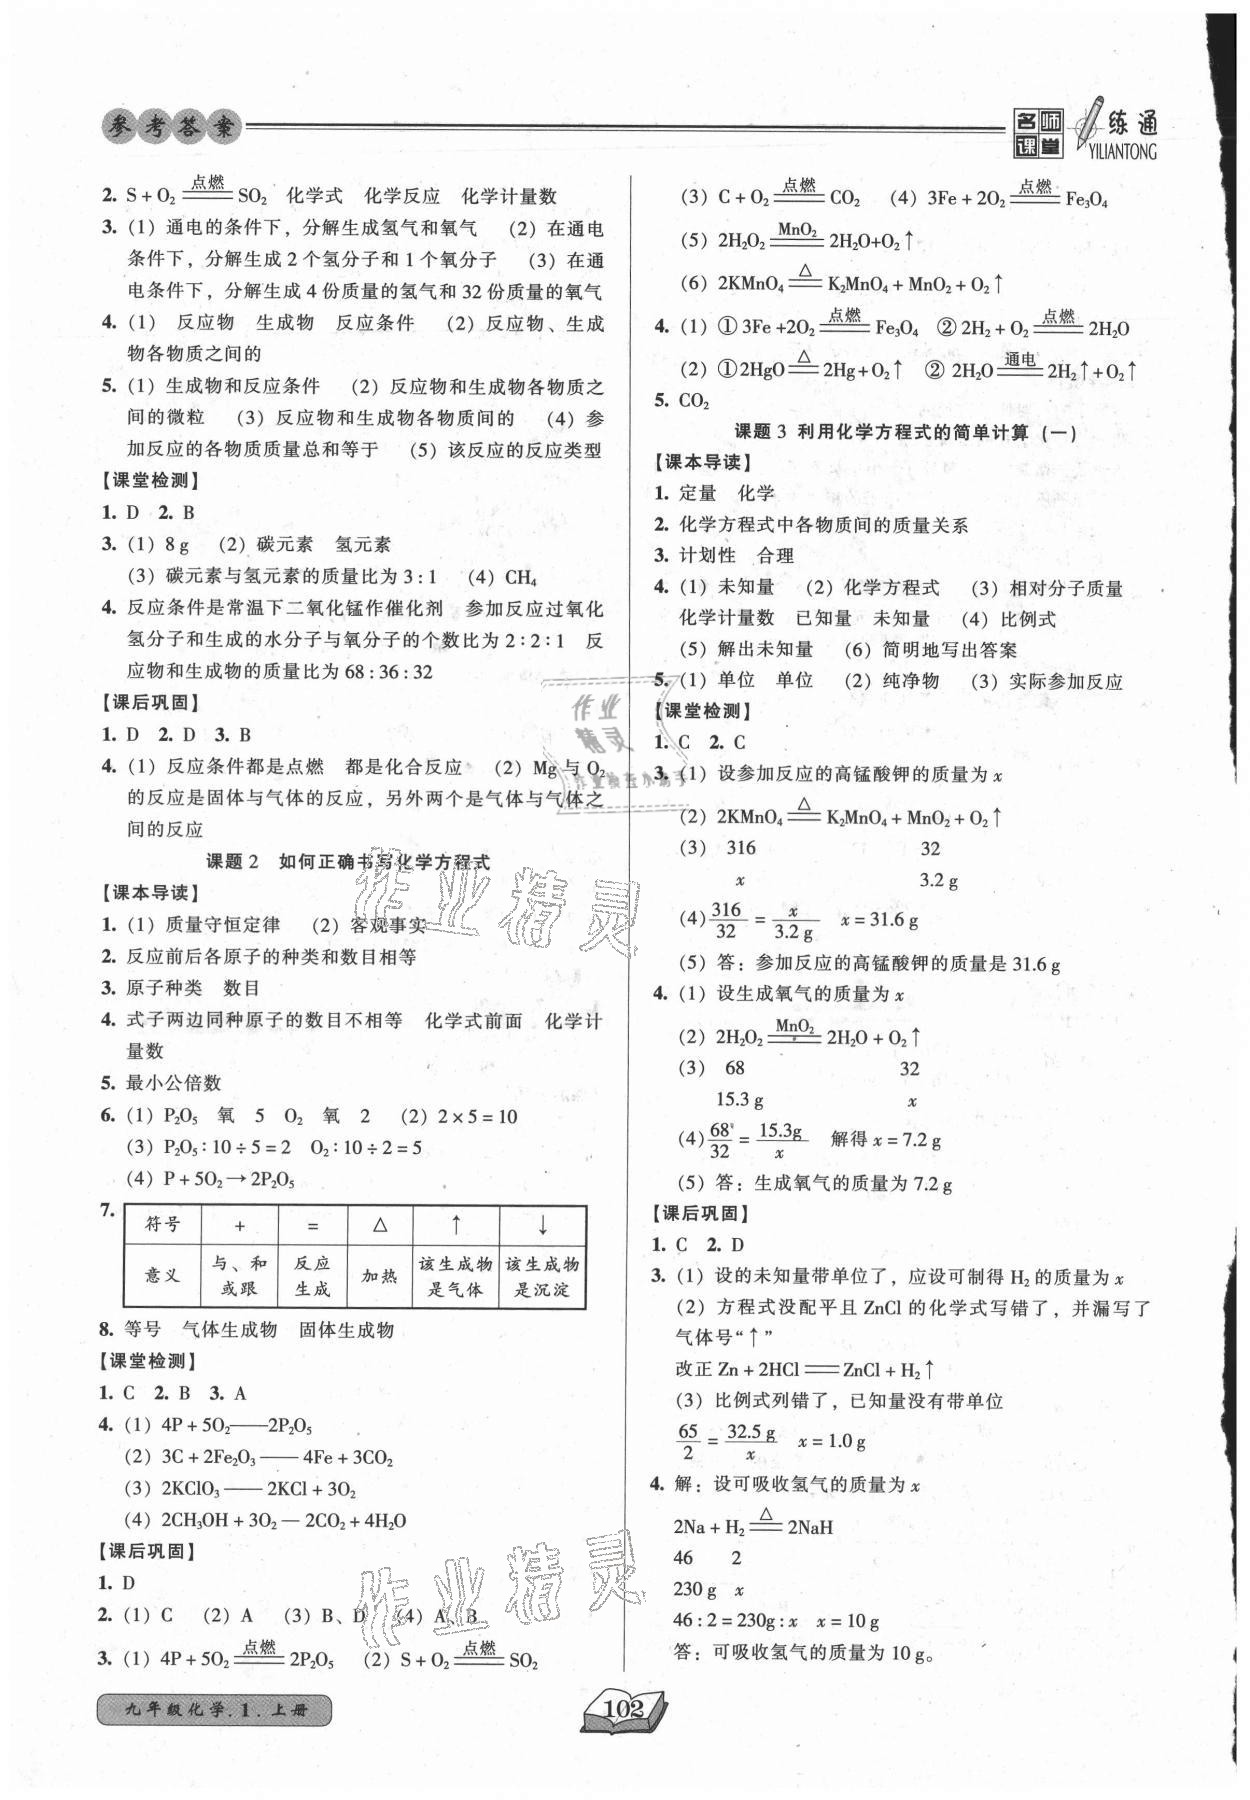 参考答案
名师课堂 练通
YILIANTONG
2. S + O₂ 点燃 SO₂ 化学式 化学反应 化学计量数
3. (1) 通电的条件下，分解生成氢气和氧气 (2) 在通电
条件下，分解生成 2 个氢分子和 1 个氧分子 (3) 在通
电条件下，分解生成 4 份质量的氢气和 32 份质量的氧气
4. (1) 反应物 生成物 反应条件 (2) 反应物、生成
物各物质之间的
5. (1) 生成物和反应条件 (2) 反应物和生成物各物质之
间的微粒 (3) 反应物和生成物各物质间的 (4) 参
加反应的各物质质量总和等于 (5) 该反应的反应类型
【课堂检测】
1. D 2. B
3. (1) 8 g (2) 碳元素 氢元素
(3) 碳元素与氢元素的质量比为 3 : 1 (4) CH₄
4. 反应条件是常温下二氧化锰作催化剂 参加反应过氧化
氢分子和生成的水分子与氧分子的个数比为 2 : 2 : 1 反
应物和生成物的质量比为 68 : 36 : 32
【课后巩固】
1. D 2. D 3. B
4. (1) 反应条件都是点燃 都是化合反应 (2) Mg 与 O₂
的反应是固体与气体的反应，另外两个是气体与气体之
间的反应
课题 2 如何正确书写化学方程式
【课本导读】
1. (1) 质量守恒定律 (2) 客观事实
2. 反应前后各原子的种类和数目相等
3. 原子种类 数目
4. 式子两边同种原子的数目不相等 化学式前面 化学计
量数
5. 最小公倍数
6. (1) P₂O₅ 氧 5 O₂ 氧 2 (2) 2 × 5 = 10
(3) P₂O₅ : 10 ÷ 5 = 2 O₂ : 10 ÷ 2 = 5
(4) P + 5O₂ → 2P₂O₅
7. 符号 + = △ ↑ ↓
意义 与、和或跟 反应生成 加热 该生成物是气体 该生成物是沉淀
8. 等号 气体生成物 固体生成物
【课堂检测】
1. C 2. B 3. A
4. (1) 4P + 5O₂——2P₂O₅
(2) 3C + 2Fe₂O₃——4Fe + 3CO₂
(3) 2KClO₃——2KCl + 3O₂
(4) 2CH₃OH + 3O₂—2CO₂ + 4H₂O
【课后巩固】
1. D
2. (1) C (2) A (3) B、D (4) A、B
3. (1) 4P + 5O₂ 点燃 2P₂O₅ (2) S + O₂ 点燃 SO₂
(3) C + O₂ 点燃 CO₂ (4) 3Fe + 2O₂ 点燃 Fe₃O₄
(5) 2H₂O₂ MnO₂ 2H₂O+O₂↑
(6) 2KMnO₄ △ K₂MnO₄ + MnO₂ + O₂↑
4. (1) ① 3Fe +2O₂ 点燃 Fe₃O₄ ② 2H₂ + O₂ 点燃 2H₂O
(2) ①2HgO △ 2Hg + O₂↑ ② 2H₂O 通电 2H₂↑+O₂↑
5. CO₂
课题 3 利用化学方程式的简单计算 (一)
【课本导读】
1. 定量 化学
2. 化学方程式中各物质间的质量关系
3. 计划性 合理
4. (1) 未知量 (2) 化学方程式 (3) 相对分子质量
化学计量数 已知量 未知量 (4) 比例式
(5) 解出未知量 (6) 简明地写出答案
5. (1) 单位 单位 (2) 纯净物 (3) 实际参加反应
【课堂检测】
1. C 2. C
3. (1) 设参加反应的高锰酸钾的质量为 x
(2) 2KMnO₄ △ K₂MnO₄ + MnO₂ + O₂↑
(3) 316 32
x 3.2 g
(4) 316/32 = x/3.2 g x = 31.6 g
(5) 答：参加反应的高锰酸钾的质量是 31.6 g
4. (1) 设生成氧气的质量为 x
(2) 2H₂O₂ MnO₂ 2H₂O + O₂↑
(3) 68 32
15.3 g x
(4) 68/32 = 15.3g/x 解得 x = 7.2 g
(5) 答：生成氧气的质量为 7.2 g
【课后巩固】
1. C 2. D
3. (1) 设的未知量带单位了，应设可制得 H₂ 的质量为 x
(2) 方程式没配平且 ZnCl 的化学式写错了，并漏写了
气体号“↑”
改正 Zn + 2HCl══ZnCl + H₂↑
(3) 比例式列错了，已知量没有带单位
65/2 = 32.5 g/x x = 1.0 g
4. 解：设可吸收氢气的质量为 x
2Na + H₂ △ 2NaH
46 2
230 g x
46 : 2 = 230g : x x = 10 g
答：可吸收氢气的质量为 10 g。
作业精灵
作业精灵
作业精灵
九年级化学.1.上册
102